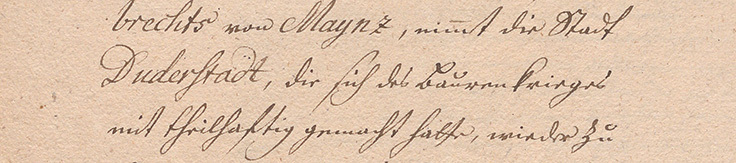 brechts von Maynz, nimmt die Stadt
Duderstadt, die sich des Baurenkrieges
mit theilhaftig gemacht hatte, wieder zu